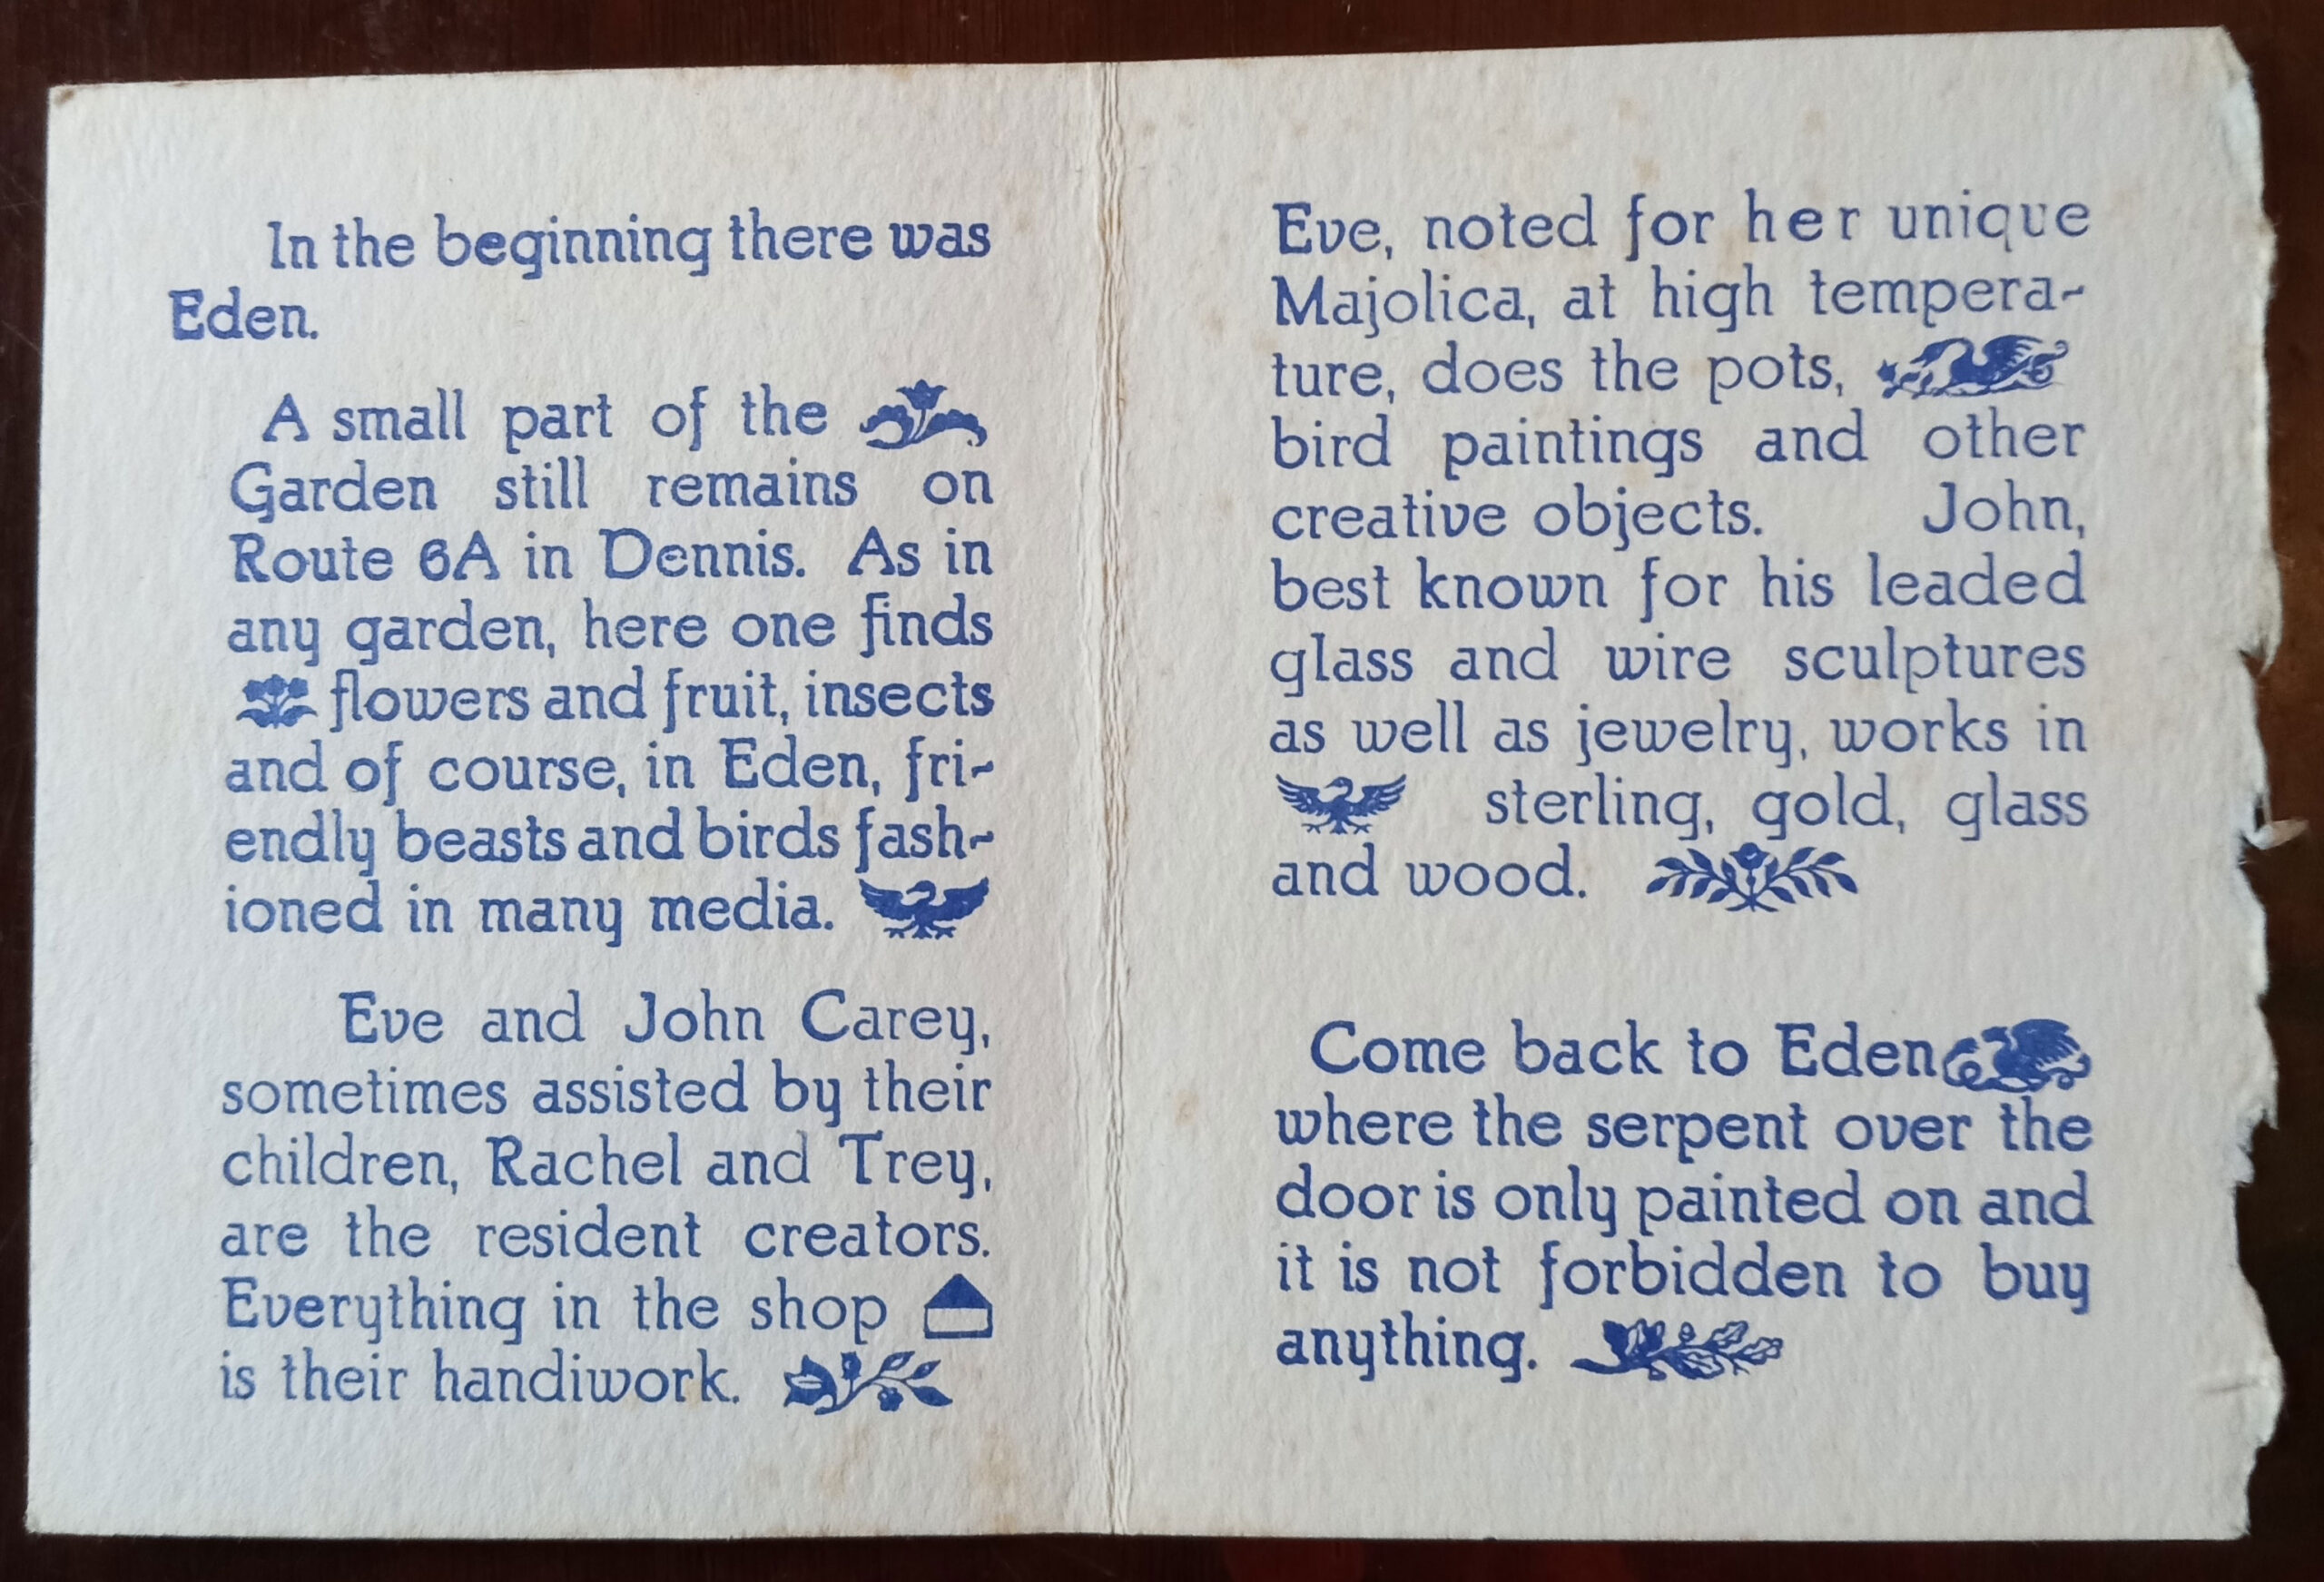 In the beginning there was
Eden.
A small part of the
Garden still remains on
Route 6A in Dennis. As in
any garden, here one finds
flowers and fruit, insects
and of course, in Eden, fri-
endly beasts and birds fash-
ioned in many media.
Eve and John Carey,
sometimes assisted by their
children, Rachel and Trey,
are the resident creators.
Everything in the shop
is their handiwork.
Eve, noted for her unique
Majolica, at high tempera-
ture, does the pots,
bird paintings and other
creative objects. John,
best known for his leaded
glass and wire sculptures
as well as jewelry, works in
sterling, gold, glass
and wood.
Come back to Eden
where the serpent over the
door is only painted on and
it is not forbidden to buy
anything.